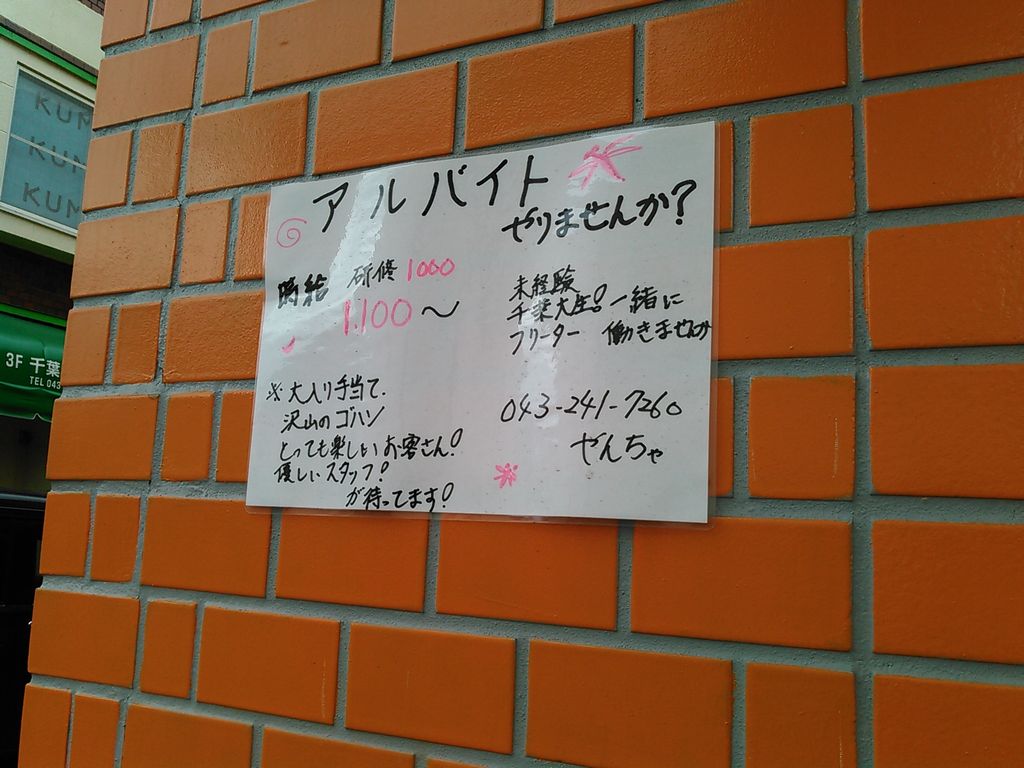 アルバイト
やりませんか?
時給 研修 1000
1,100〜
未経験
千葉大生! 一緒に
フリーター 働きませんか
※大入り手当て、
沢山のゴハン
とっても楽しいお客さん!
優しいスタッフ!
が待ってます!
043-241-7260
やんちゃ
KUM
KUM
KUM
3F 千葉
TEL 043